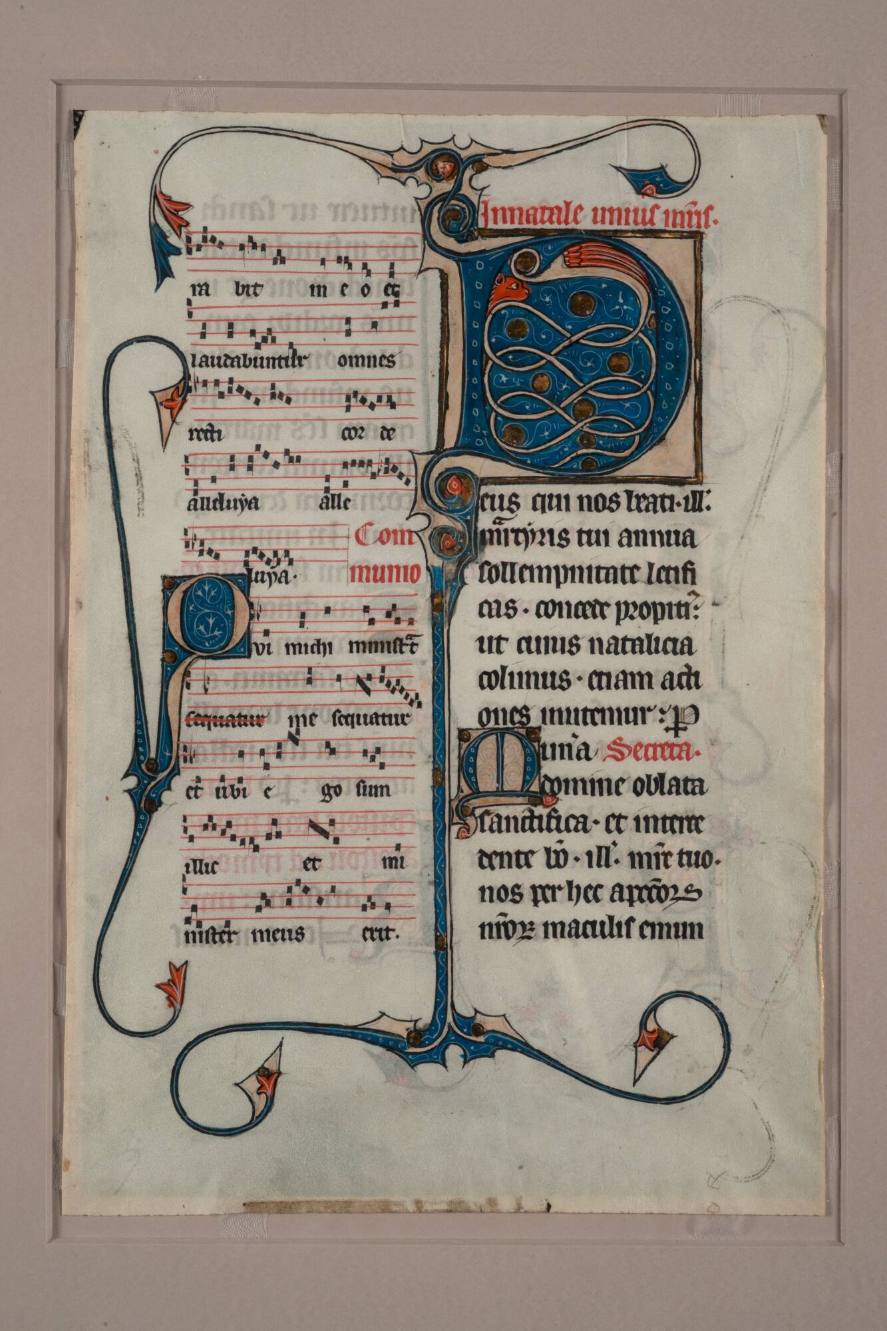 ra bit in e o et
laudabuntur omnes
recti cor de
alleluya alle
luya. Com
munio
Qvi michi ministrat
sequatur me sequatur
et ubi e go sum
illic et mi
nister meus erit.
In natale unius mr̃is.
Deus qui nos beati · ill̃:
m̃rtyris tui annua
sollempnitate letifi
cas · concede propiti⁹:
ut cuius natalicia
colimus · etiam acti
ones imitemur : P
Mun̄a Secreta.
domine oblata
sanctifica · et interce
dente b̃o · ill̃ · m̃re tuo ·
nos per hec a pecc̃oꝝ
nr̃oꝝ maculis emun